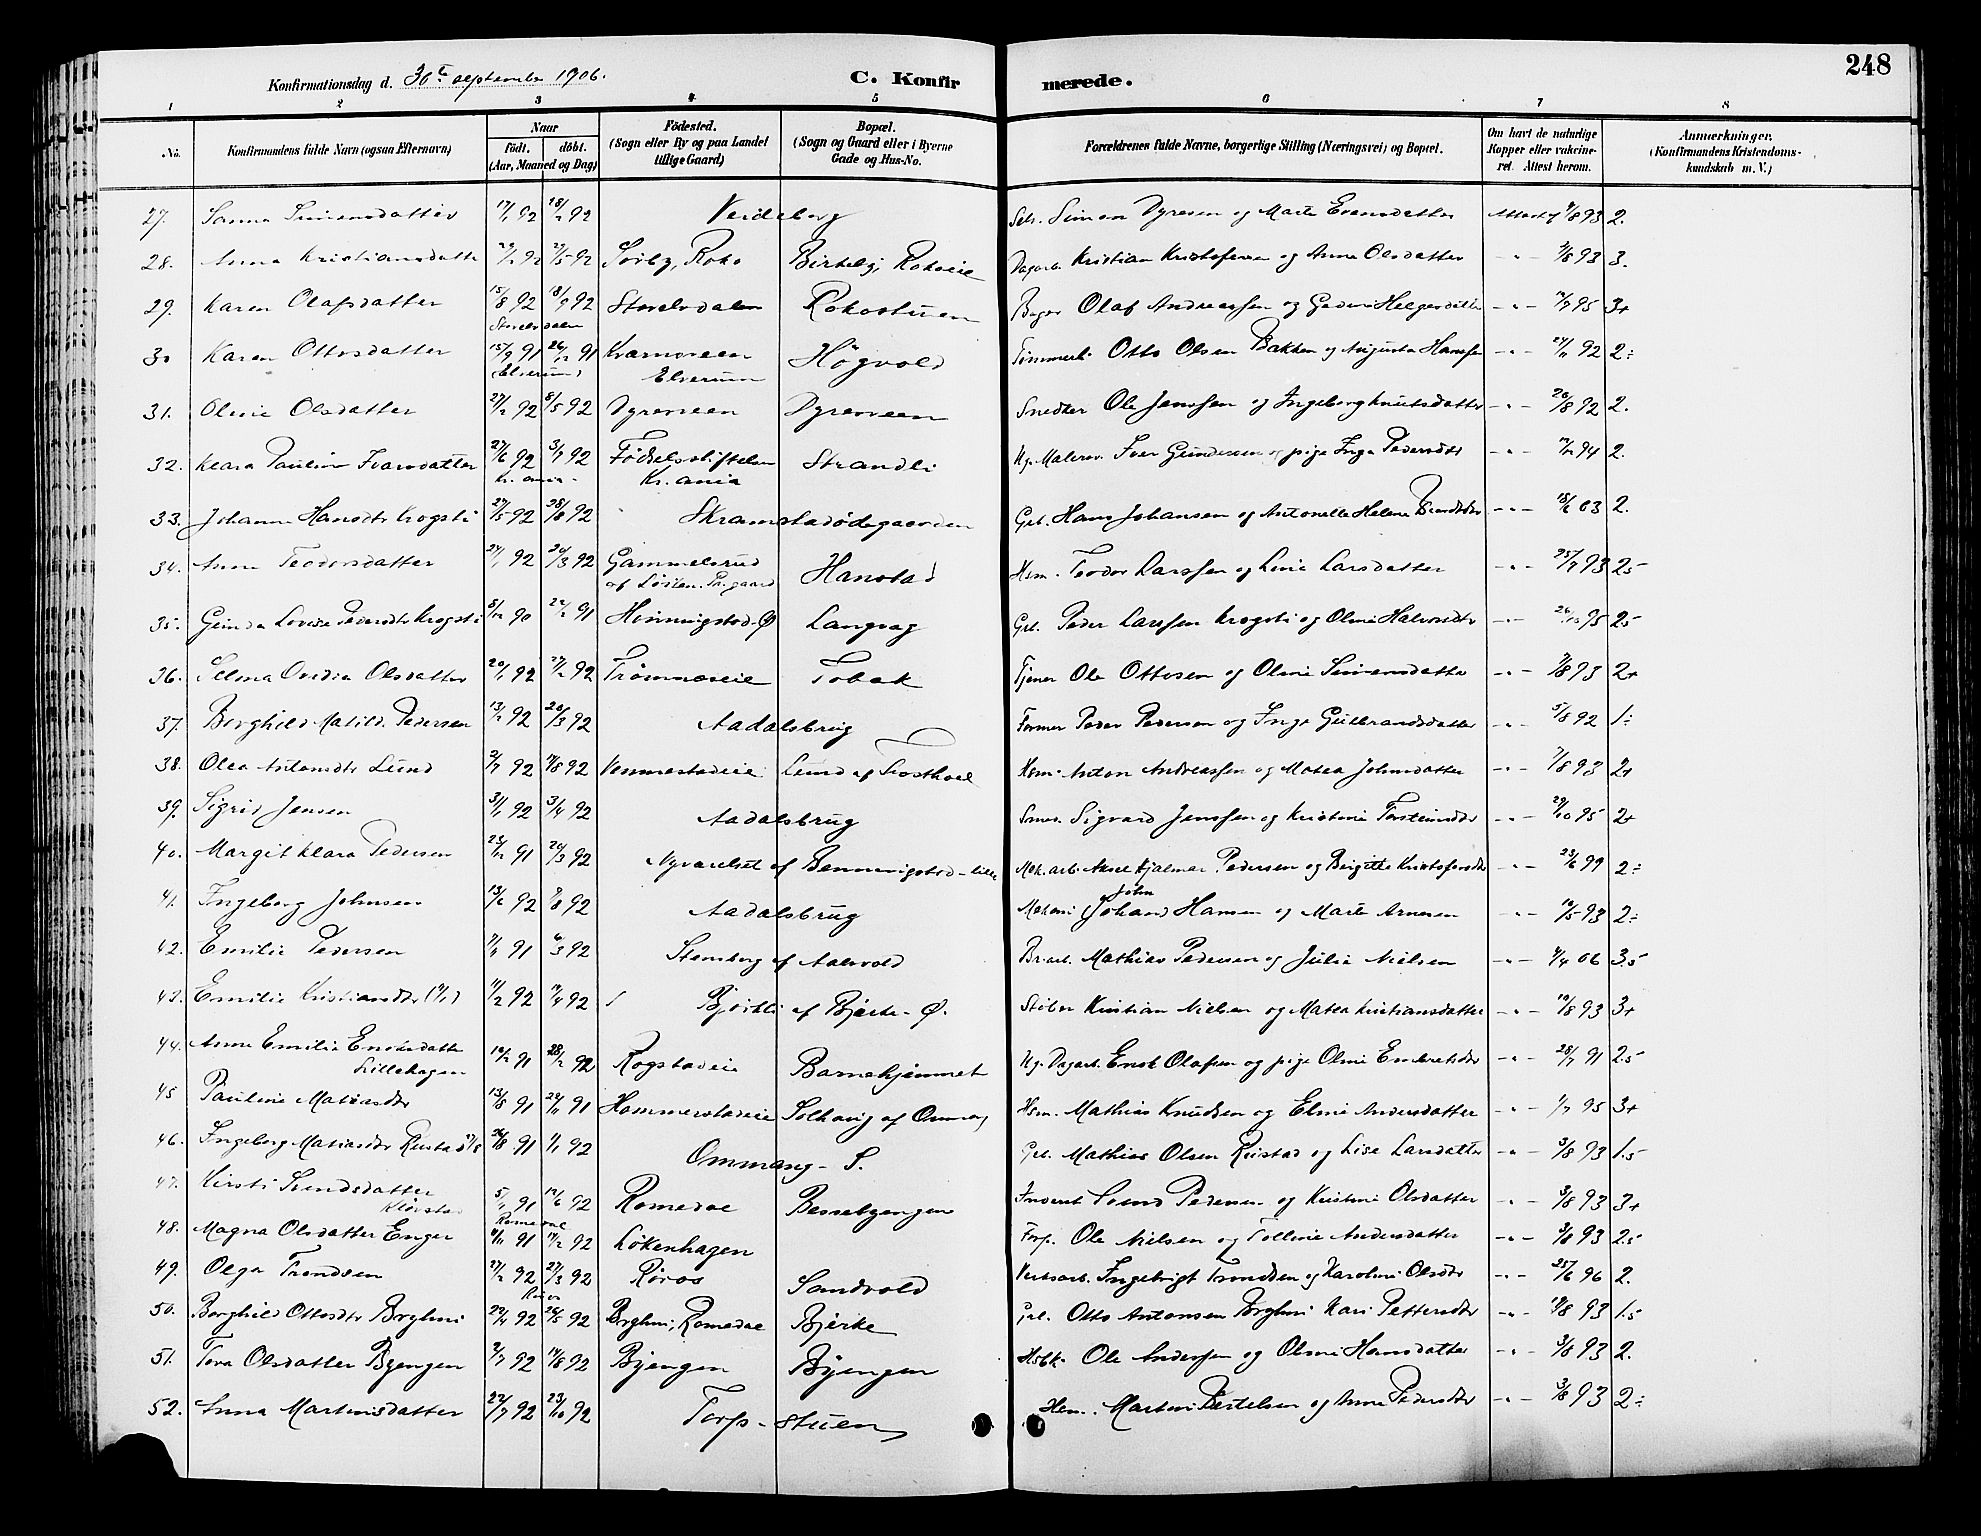 248
Konfirmationsdag d. 30te september 1906.
C. Konfirmerede.
1 2 3 4 5 6 7 8
No. Konfirmandens fulde Navn (ogsaa Efternavn) Naar födt. döbt. (Aar, Maaned og Dag) Födested. (Sogn eller By og paa Landet tillige Gaard) Bopæl. (Sogn og Gaard eller i Byerne Gade og Hus-No. Forældrenes fulde Navne, borgerlige Stilling (Næringsvei) og Bopæl. Om havt de naturlige Kopper eller vakcineret. Attest herom. Anmærkninger. (Konfirmandens Kristendomskundskab m. V.)
27. Sanna Simensdatter 17/1 92 18/2 92 Simen Dyresen og Marte Evensdatter Attest af 4/8 93 2.
28. Anna Kristiansdatter 27/5 92 Sörby, Roko Birkeby, Rokoeie Dagarb. Kristian Kristofersen og Anne Olsdatter -"- 3/8 93 3.
29. Karen Olafsdatter 15/8 92 18/9 92 Storelvdalen Storelvdalen Rokostuen Olaf Andreassen og Helgesdatter -"- 95 3+
30 Karen Ottosdatter 15/9 91 26/12 91 (Elverum) Elverum Högvold Tömmerh. Otto Olsen Bakken og Augusta Hansen -"- 92 2÷
31. Oline Olsdatter 27/2 92 8/5 92 Dyreveen Dyreveen Snedker Ole Janssen og Ingeborg Knutsdatter -"- 26/8 92 2.
32. Klara Pauline Ivarsdatter 27/6 92 3/7 92 Kr.ania Födselsstiftelsen Kr.ania Strandli Ug. Malersv. Iver Gundersen og pige Inga Pedersdtr -"- 94 2.
33. Johanne Hansdtr Krogsti 27/5 92 28/8 92 Skramstadödegaarden Grb. Hans Johansen og Antonette Helene -"- 18/6 03 2.
34. Anna Teodorsdatter 24/1 92 20/3 92 Gammelsrud af Löiten Prgaard Hanstad Hsm. Teodor Larssen og Line Larsdatter -"- 25/7 93 2.5
35. Gunda Lovise Pedersdtr Krogsti 5/12 90 22/2 91 Henningstad-Ö Langvag Grb. Peder Larssen Krogsti og Oline Halvorsdtr -"- 26/10 95 2.5
36. Selma Ovidia Olsdatter 20/1 92 27/2 92 Trömnæseie Tobak Tjener Ole Ottosen og Oline Simensdatter -"- 3/8 93 2+
37. Borghild Matild. Pedersen 13/2 92 20/3 92 Aadalsbrug Former Peder Pedersen og Inga Gulbrandsdatter -"- 5/8 92 1÷
38. Olea Antonsdtr Lund 2/7 92 14/8 92 Vennestadeie Lund af Hsm. Anton Andreassen og Matea Johnsdatter -"- 7/8 93 2+
39. Sigrid Jensen 31/1 92 3/4 92 Aadalsbrug Smed. Sigvard Janssen og Kristine Torsteinsdtr -"- 29/10 95 2+
40. Margit Klara Pedersen 23/12 91 20/3 92 Nyværelset af Benningstad-lille Mek. arb. Aksel Hjalmar Pedersen og Birgitte Kristofersdtr -"- 23/6 99 2÷
41. Ingeborg Johnsen 13/6 92 7/8 92 Aadalsbrug John Johan Hansen og Marte Arnesen -"- 10/5 93 2÷
42. Emilie Pedersen 7/11 91 6/3 92 Stensberg af Aalsvold Br.arb. Mathias Pedersen og Julie Nielsen -"- 4/4 06 3.5
43. Emilie Kristiansdtr 11/2 92 17/4 92 Björkli af Bjerke-Ö. Stöber Kristian Nielsen og Matea Kristiansdatter -"- 10/8 93 3+
44. Anne Emilie Enoksdatter Lillehagen 19/12 91 28/2 92 Rogstadeie Barnehjemmet Ug. Dagarb. Enok Olafsen og pige Oline Embretsdtr -"- 28/7 91 2.5
45 Pauline Matiasdtr 13/8 91 29/11 91 Hommerstadeie Solhaug af Ommang Hsm. Mathias Knudsen og Eline Andersdatter -"- 1/7 95 3+
46. Ingeborg Matiasdtr Rustad 26/8 91 1/1 92 Ommang-S. Grb. Mathias Olsen Rustad og Lise Larsdatter -"- 3/8 93 1.5
47. Kirsti Svendsdatter Klövstad 5/11 91 12/6 92 Romedal Romedal Inderst Svend Pedersen og Kristine Olsdatter -"- 3/8 93 3+
48. Magna Olsdatter Enger 91 92 Lökenhagen Forp. Ole Nielsen og Tolline Andersdatter -"- 3/8 93 2.5
49. Olga Trondsen 27/2 92 27/3 92 Röros Röros Sandvold Verksarb. Ingebrigt Trondsen og Karoline Olsdtr -"- 25/6 96 2.
50. Borghild Ottosdtr Berghni 29/4 92 26/5 92 Berghni, Romedal Bjerke Grb. Otto Antonsen Berghni Kari Pettersdtr -"- 19/8 93 1.5
51. Tora Olsdatter Byengen 2/7 92 14/8 92 Byengen Byengen Hsbk. Ole Andersen og Oline Hansdatter -"- 3/8 93 2.
52. Anna Martinsdatter 22/7 92 23/10 92 Torp-stuen Hsm. Martin Bertelsen og Anne Pedersdtr -"- 3/8 93 2÷